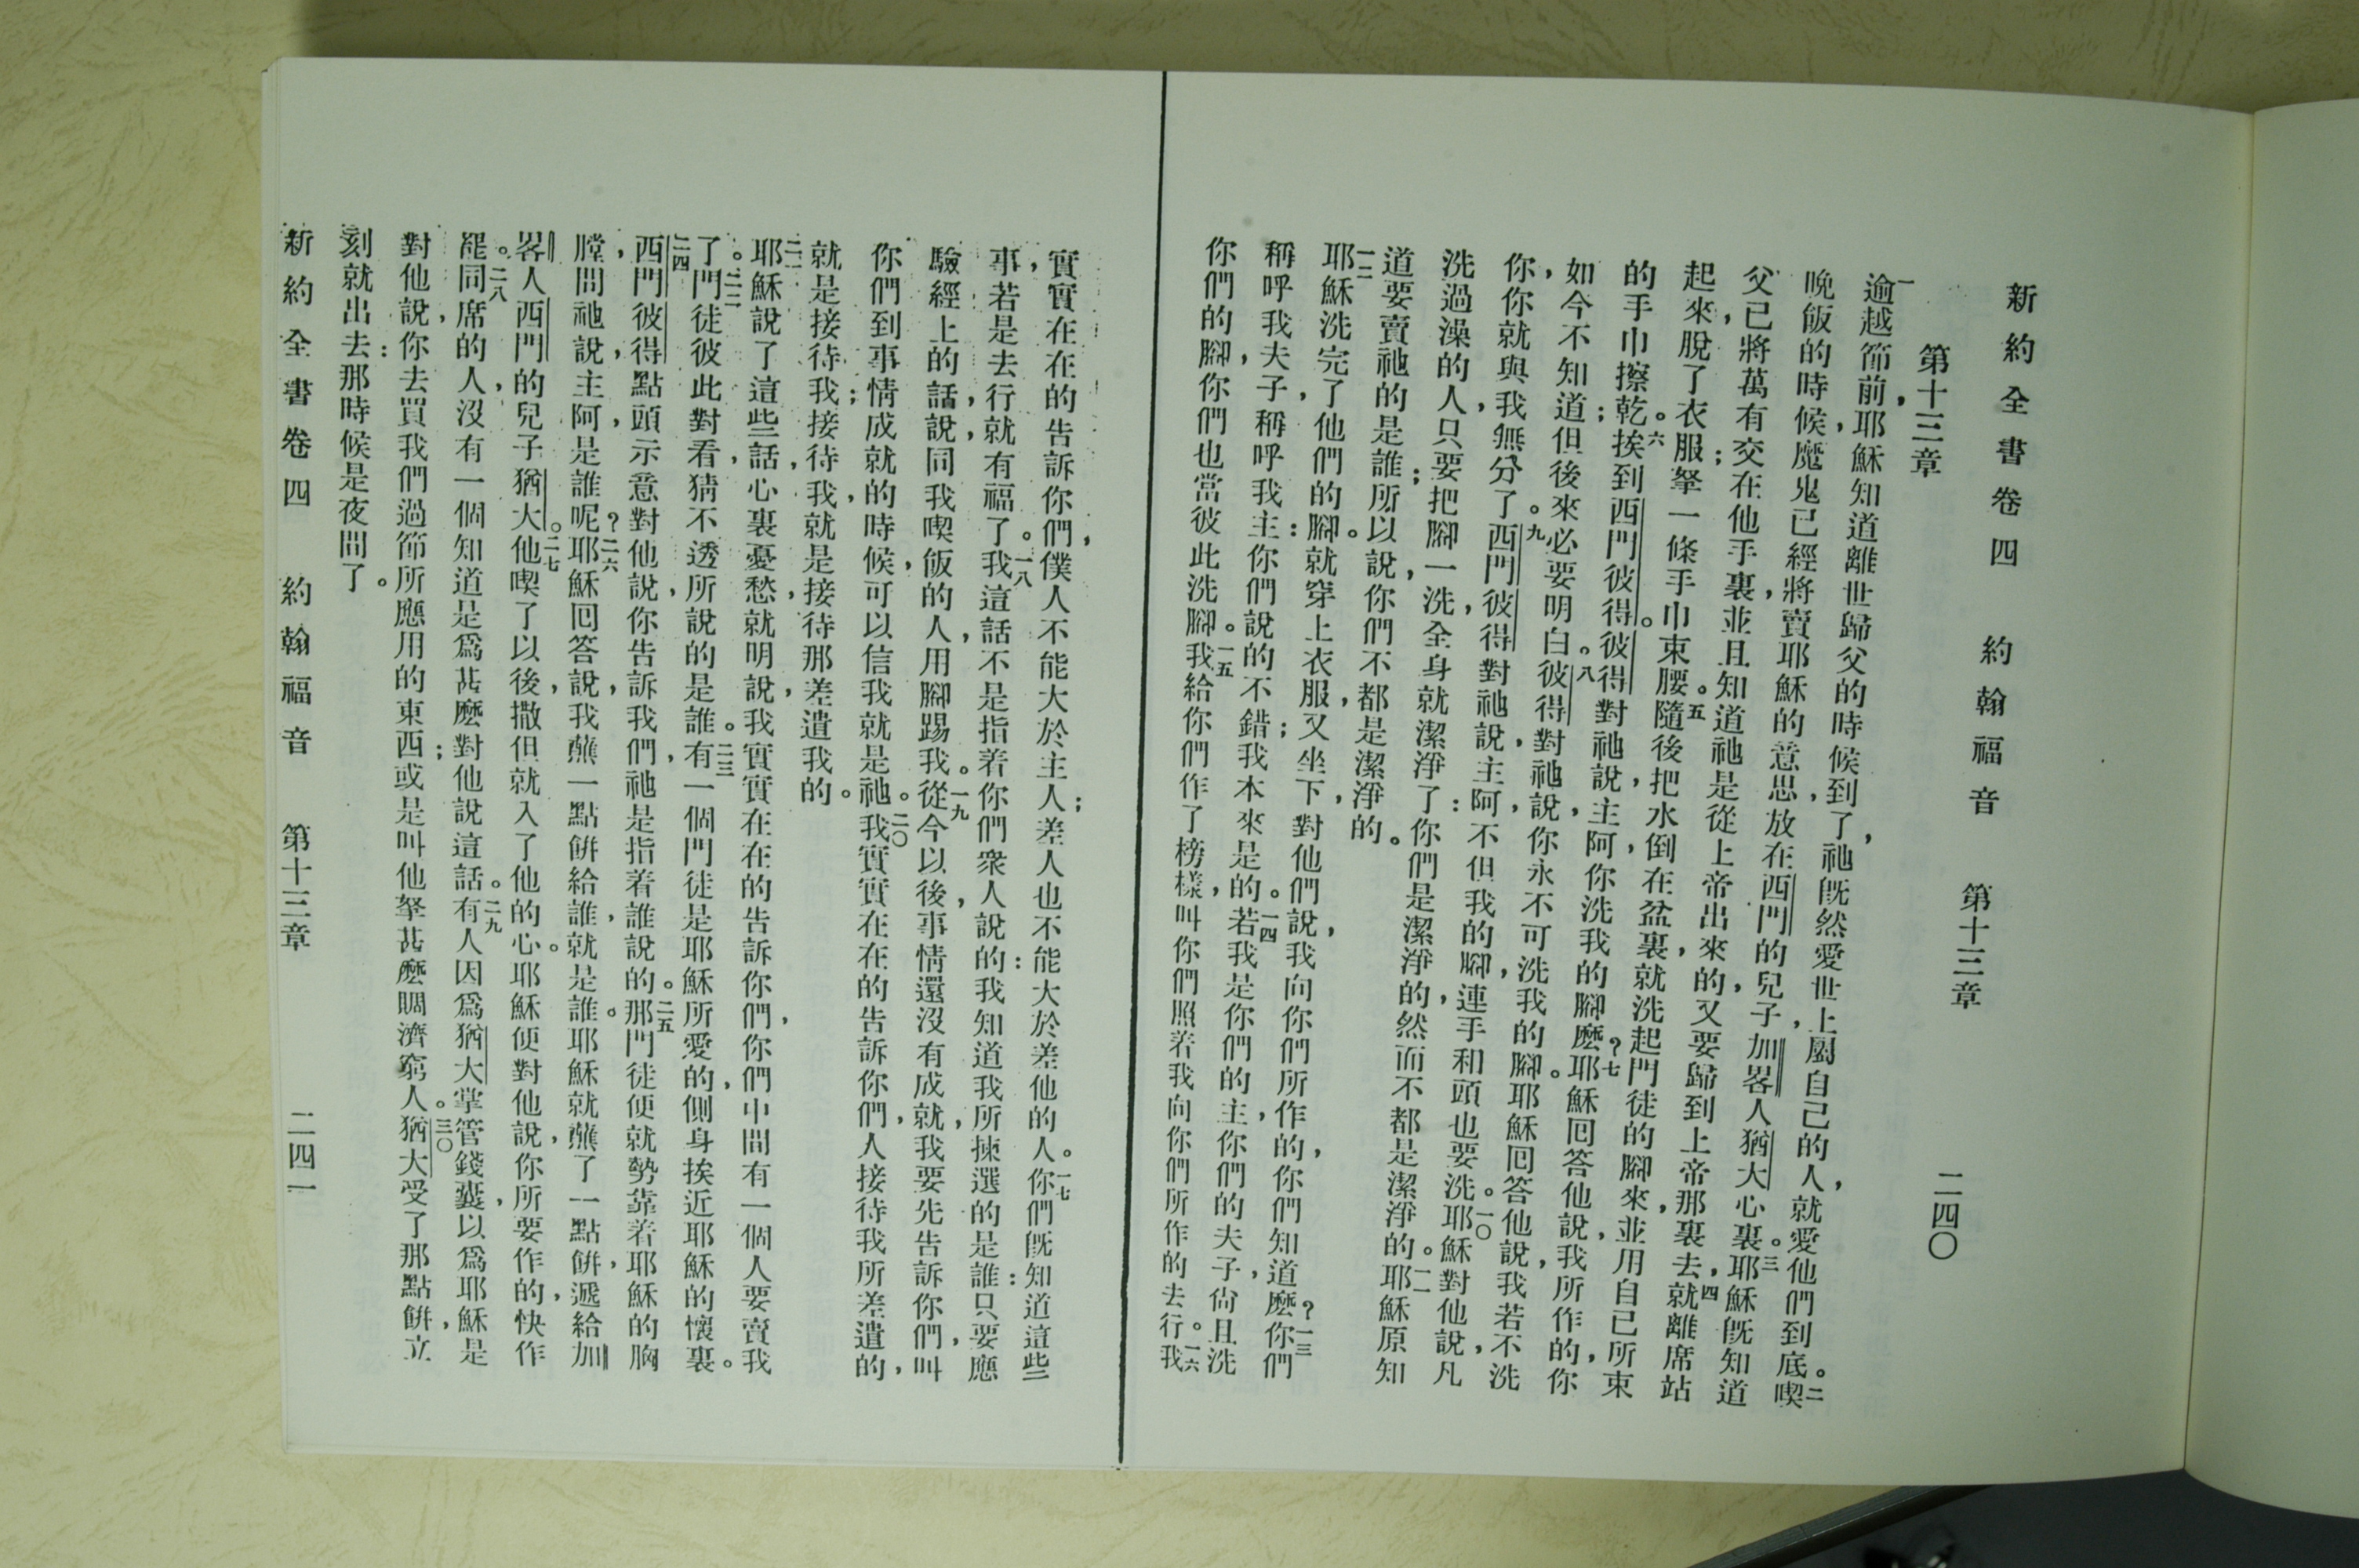 新約全書卷四　約翰福音　第十三章　二四〇
第十三章
一逾越節前，耶穌知道離世歸父的時候到了，祂旣然愛世上屬自己的人，就愛他們到底。二喫
晚飯的時候，魔鬼已經將賣耶穌的意思，放在西門的兒子，加畧人猶大心裏。三耶穌旣知道
父已將萬有交在他手裏，並且知道祂是從上帝出來的，又要歸到上帝那裏去，四就離席站
起來，脫了衣服；拏一條手巾束腰。五隨後把水倒在盆裏，就洗起門徒的腳來，並用自己所束
的手巾擦乾。六挨到西門彼得。彼得對祂說，主阿，你洗我的腳麼？七耶穌囘答他說，我所作的，你
如今不知道；但後來必要明白。八彼得對祂說，你永不可洗我的腳。耶穌囘答他說，我若不洗
你，你就與我無分了。九西門彼得對祂說，主阿，不但我的腳，連手和頭也要洗。一〇耶穌對他說，凡
洗過澡的人，只要把腳一洗，全身就潔淨了：你們是潔淨的，然而不都是潔淨的。一一耶穌原知
道要賣祂的是誰；所以說，你們不都是潔淨的。
一二耶穌洗完了他們的腳。就穿上衣服，又坐下，對他們說，我向你們所作的，你們知道麼？一三你們
稱呼我夫子，稱呼我主：你們說的不錯；我本來是的。一四若我是你們的主，你們的夫子，尙且洗
你們的腳，你們也當彼此洗腳。一五我給你們作了榜樣，叫你們照着我向你們所作的去行。一六我
實實在在的告訴你們，僕人不能大於主人；差人也不能大於差他的人。一七你們旣知道這些
事，若是去行，就有福了。一八我這話不是指着你們衆人說的：我知道我所揀選的是誰：只要應
驗經上的話，說，同我喫飯的人，用腳踢我。一九從今以後，事情還沒有成就，我要先告訴你們，叫
你們到事情成就的時候，可以信我就是祂。二〇我實實在在的告訴你們，人接待我所差遣的，
就是接待我；接待我，就是接待那差遣我的。
二一耶穌說了這些話，心裏憂愁，就明說，我實實在在的告訴你們，你們中間有一個人要賣我
了。二二門徒彼此對看，猜不透所說的是誰。二三有一個門徒是耶穌所愛的，側身挨近耶穌的懷裏。
二四西門彼得點頭示意對他說，你告訴我們，祂是指着誰說的。二五那門徒便就勢靠着耶穌的胸
膛，問祂說，主阿，是誰呢？二六耶穌囘答說，我蘸一點餠給誰，就是誰。耶穌就蘸了一點餠，遞給加
畧人西門的兒子猶大。二七他喫了以後，撒但就入了他的心。耶穌便對他說，你所要作的，快作
罷。二八同席的人，沒有一個知道是爲甚麼對他說這話。二九有人因爲猶大掌管錢囊，以爲耶穌是
對他說，你去買我們過節所應用的東西；或是叫他拏甚麼賙濟窮人。三〇猶大受了那點餠，立
刻就出去：那時候是夜間了。
新約全書卷四　約翰福音　第十三章　二四一